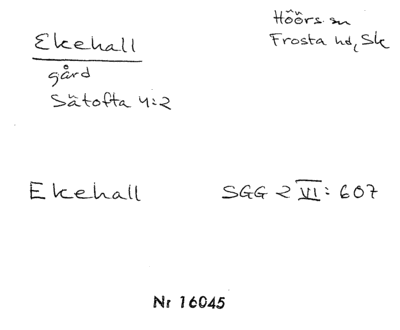 Ekehall
gård
Sätofta 4:2
Höörs sn
Frosta hd, Sk
Ekehall
SGG 2 VI: 607
Nr 16045